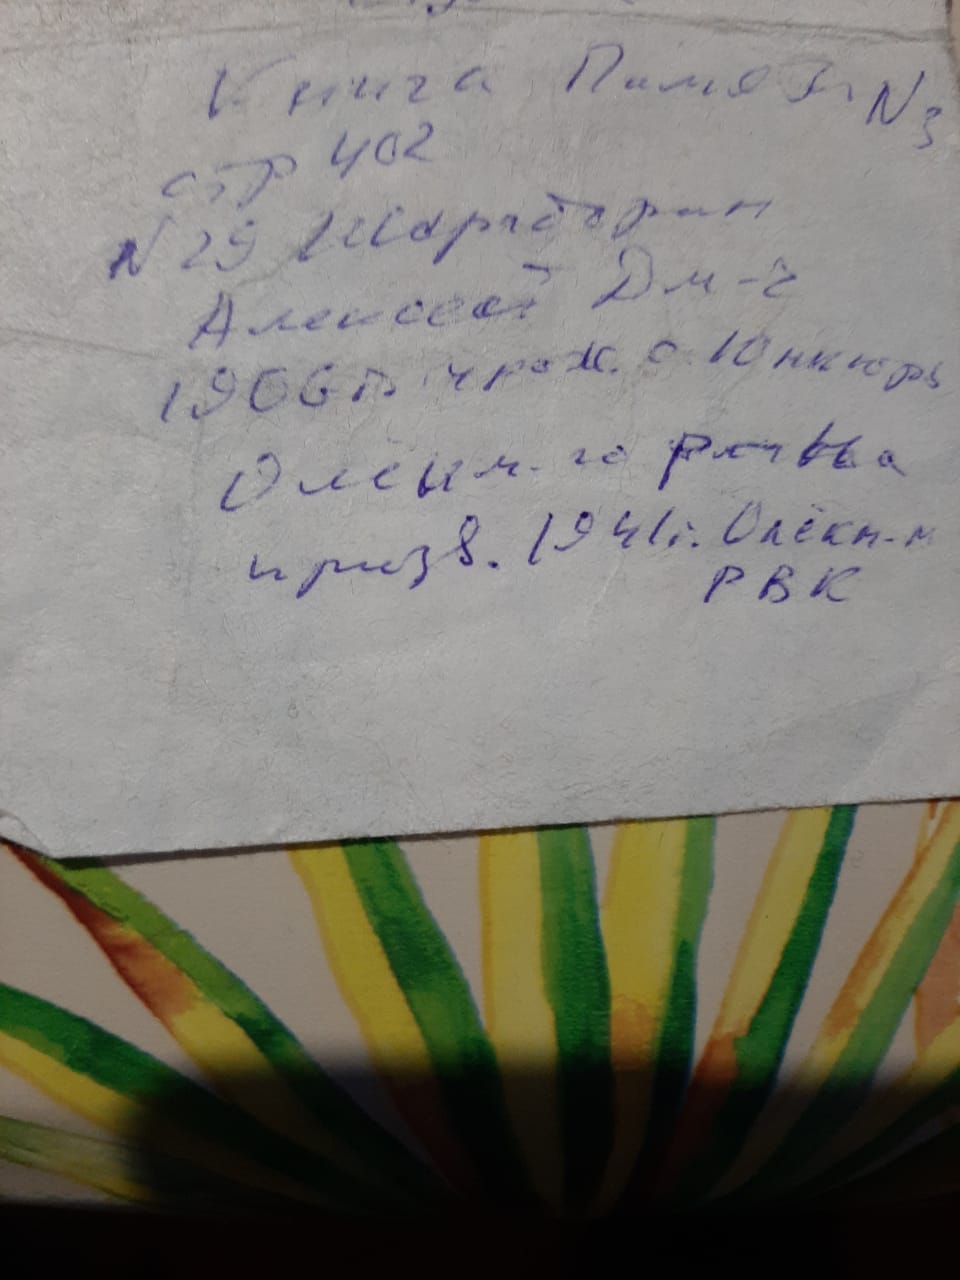 Книга Памяти N 3
стр 402
N 29 Шараборин
Алексей Дм-ч
1906 г. урож. с. Юнкюр
Олёкм-го
призв. 1941г. Олёкм-м
РВК